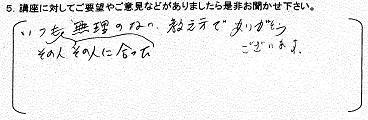 5. 講座に対してご要望やご意見などがありましたら是非お聞かせ下さい。
いつも無理のない教え方でありがとう
その人その人に合った
ございます。